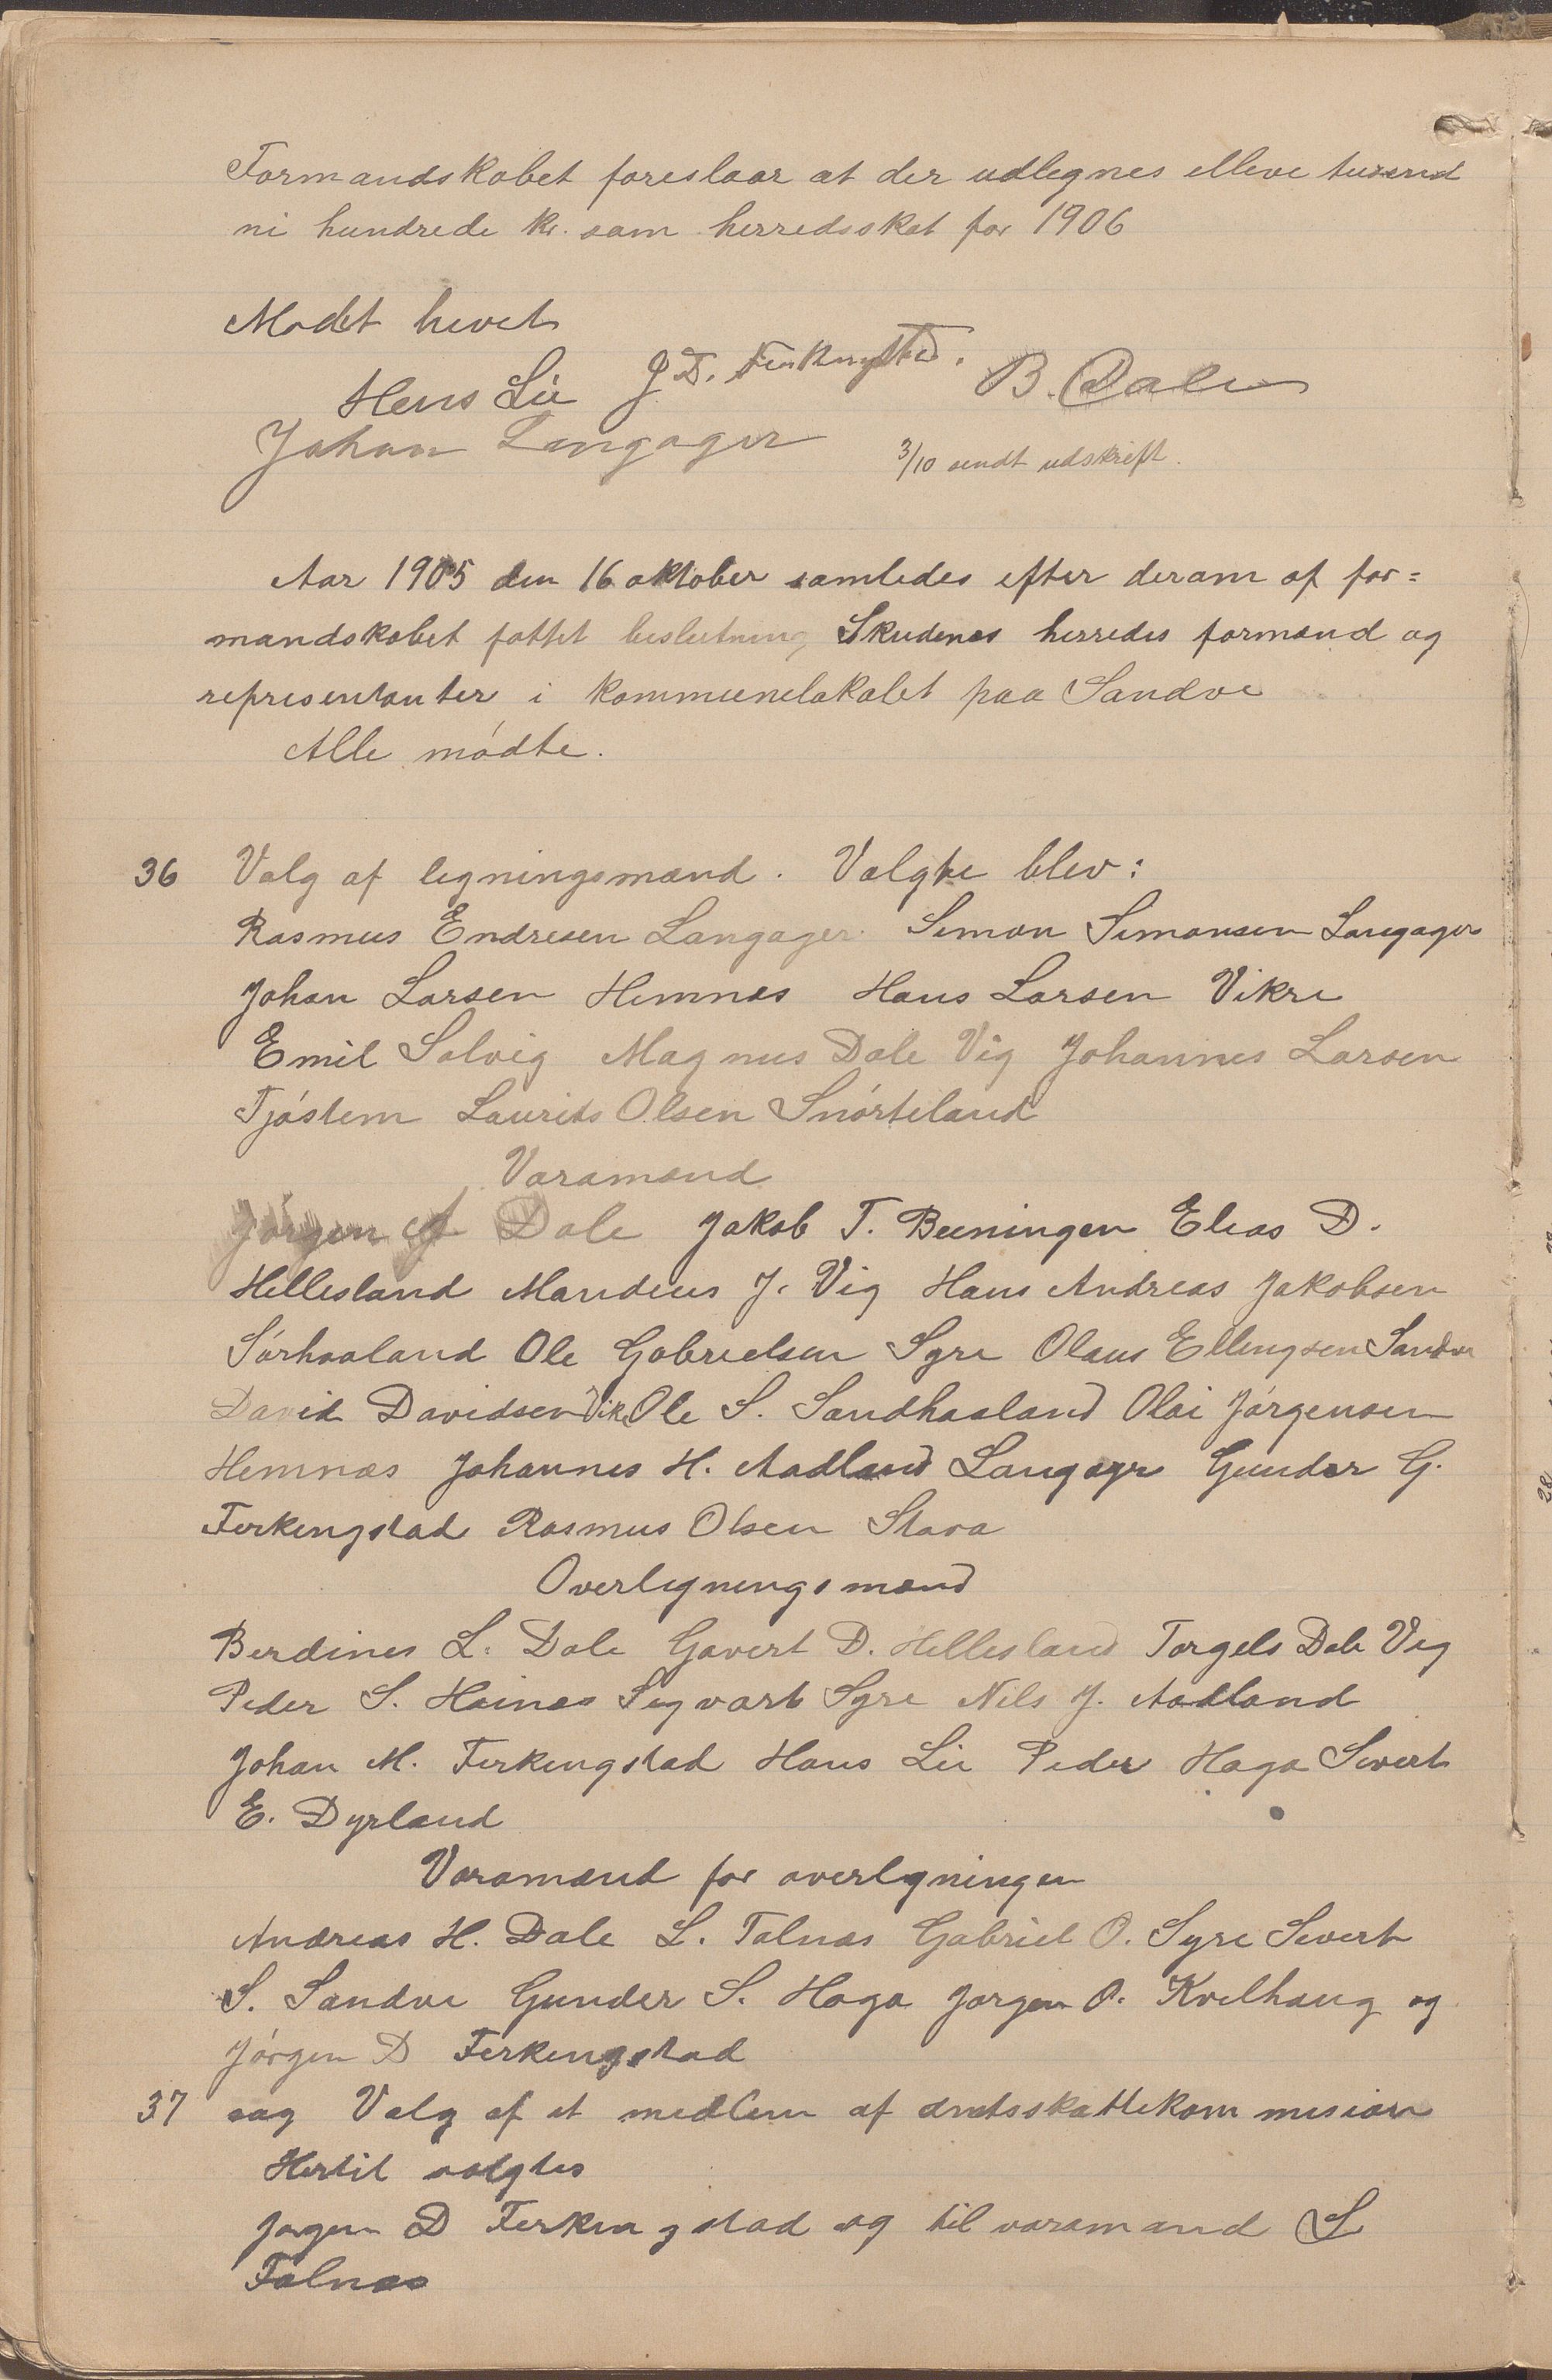 Formandskabet foreslaar at der udlegnes elleve tusend
ni hundrede kr. som herredsskat for 1906
Mødet hevet
Hans Lie J D. Ferkingstad. B. Dale
Johan Langager 3/10 sendt udskrift.
Aar 1905 den 16 oktober samledes efter derom af for=
mandskabet fattet beslutning Skudenes herredes formænd og
representanter i kommunelokalet paa Sandve
Alle mødte.
36 Valg af ligningsmænd. Valgte blev:
Rasmus Endresen Langager. Simon Simonsen Langager
Johan Larsen Hemnes Hans Larsen Vikre
Emil Solvig Magnus Dale Vig Johannes Larsen
Tjøstem Laurits Olsen Snørteland
Varamænd
Jørgen J Dale Jakob T. Beiningen Elias D.
Hellesland Mandius J. Vig Hans Andreas Jakobsen
Sørhaaland Ole Gabrielsen Syre Olaus Ellingsen Sandve
David Davidsen Vik Ole S. Sandhaaland Olai Jørgensen
Hemnæs Johannes H. Aadland Langager Gunder G.
Ferkingstad Rasmus Olsen Stava
Overligningsmænd
Berdines L. Dale Gavert D. Hellesland Torgels Dale Vig
Peder S. Hoines Sigvart Syre Nils J. Aadland
Johan M. Ferkingstad Hans Lie Peder Haga Sivert
E. Dyrland
Varamænd for overligningen
Andreas H. Dale L. Falnæs Gabriel O. Syre Sivert
S. Sandve Gunder S. Haga Jørgen O. Kvilhaug og
Jørgen D Ferkingstad
37 sag Valg af et medlem af amtsskattekommision
Hertil valgtes
Jørgen D Ferkingstad og til varamand L
Falnæs